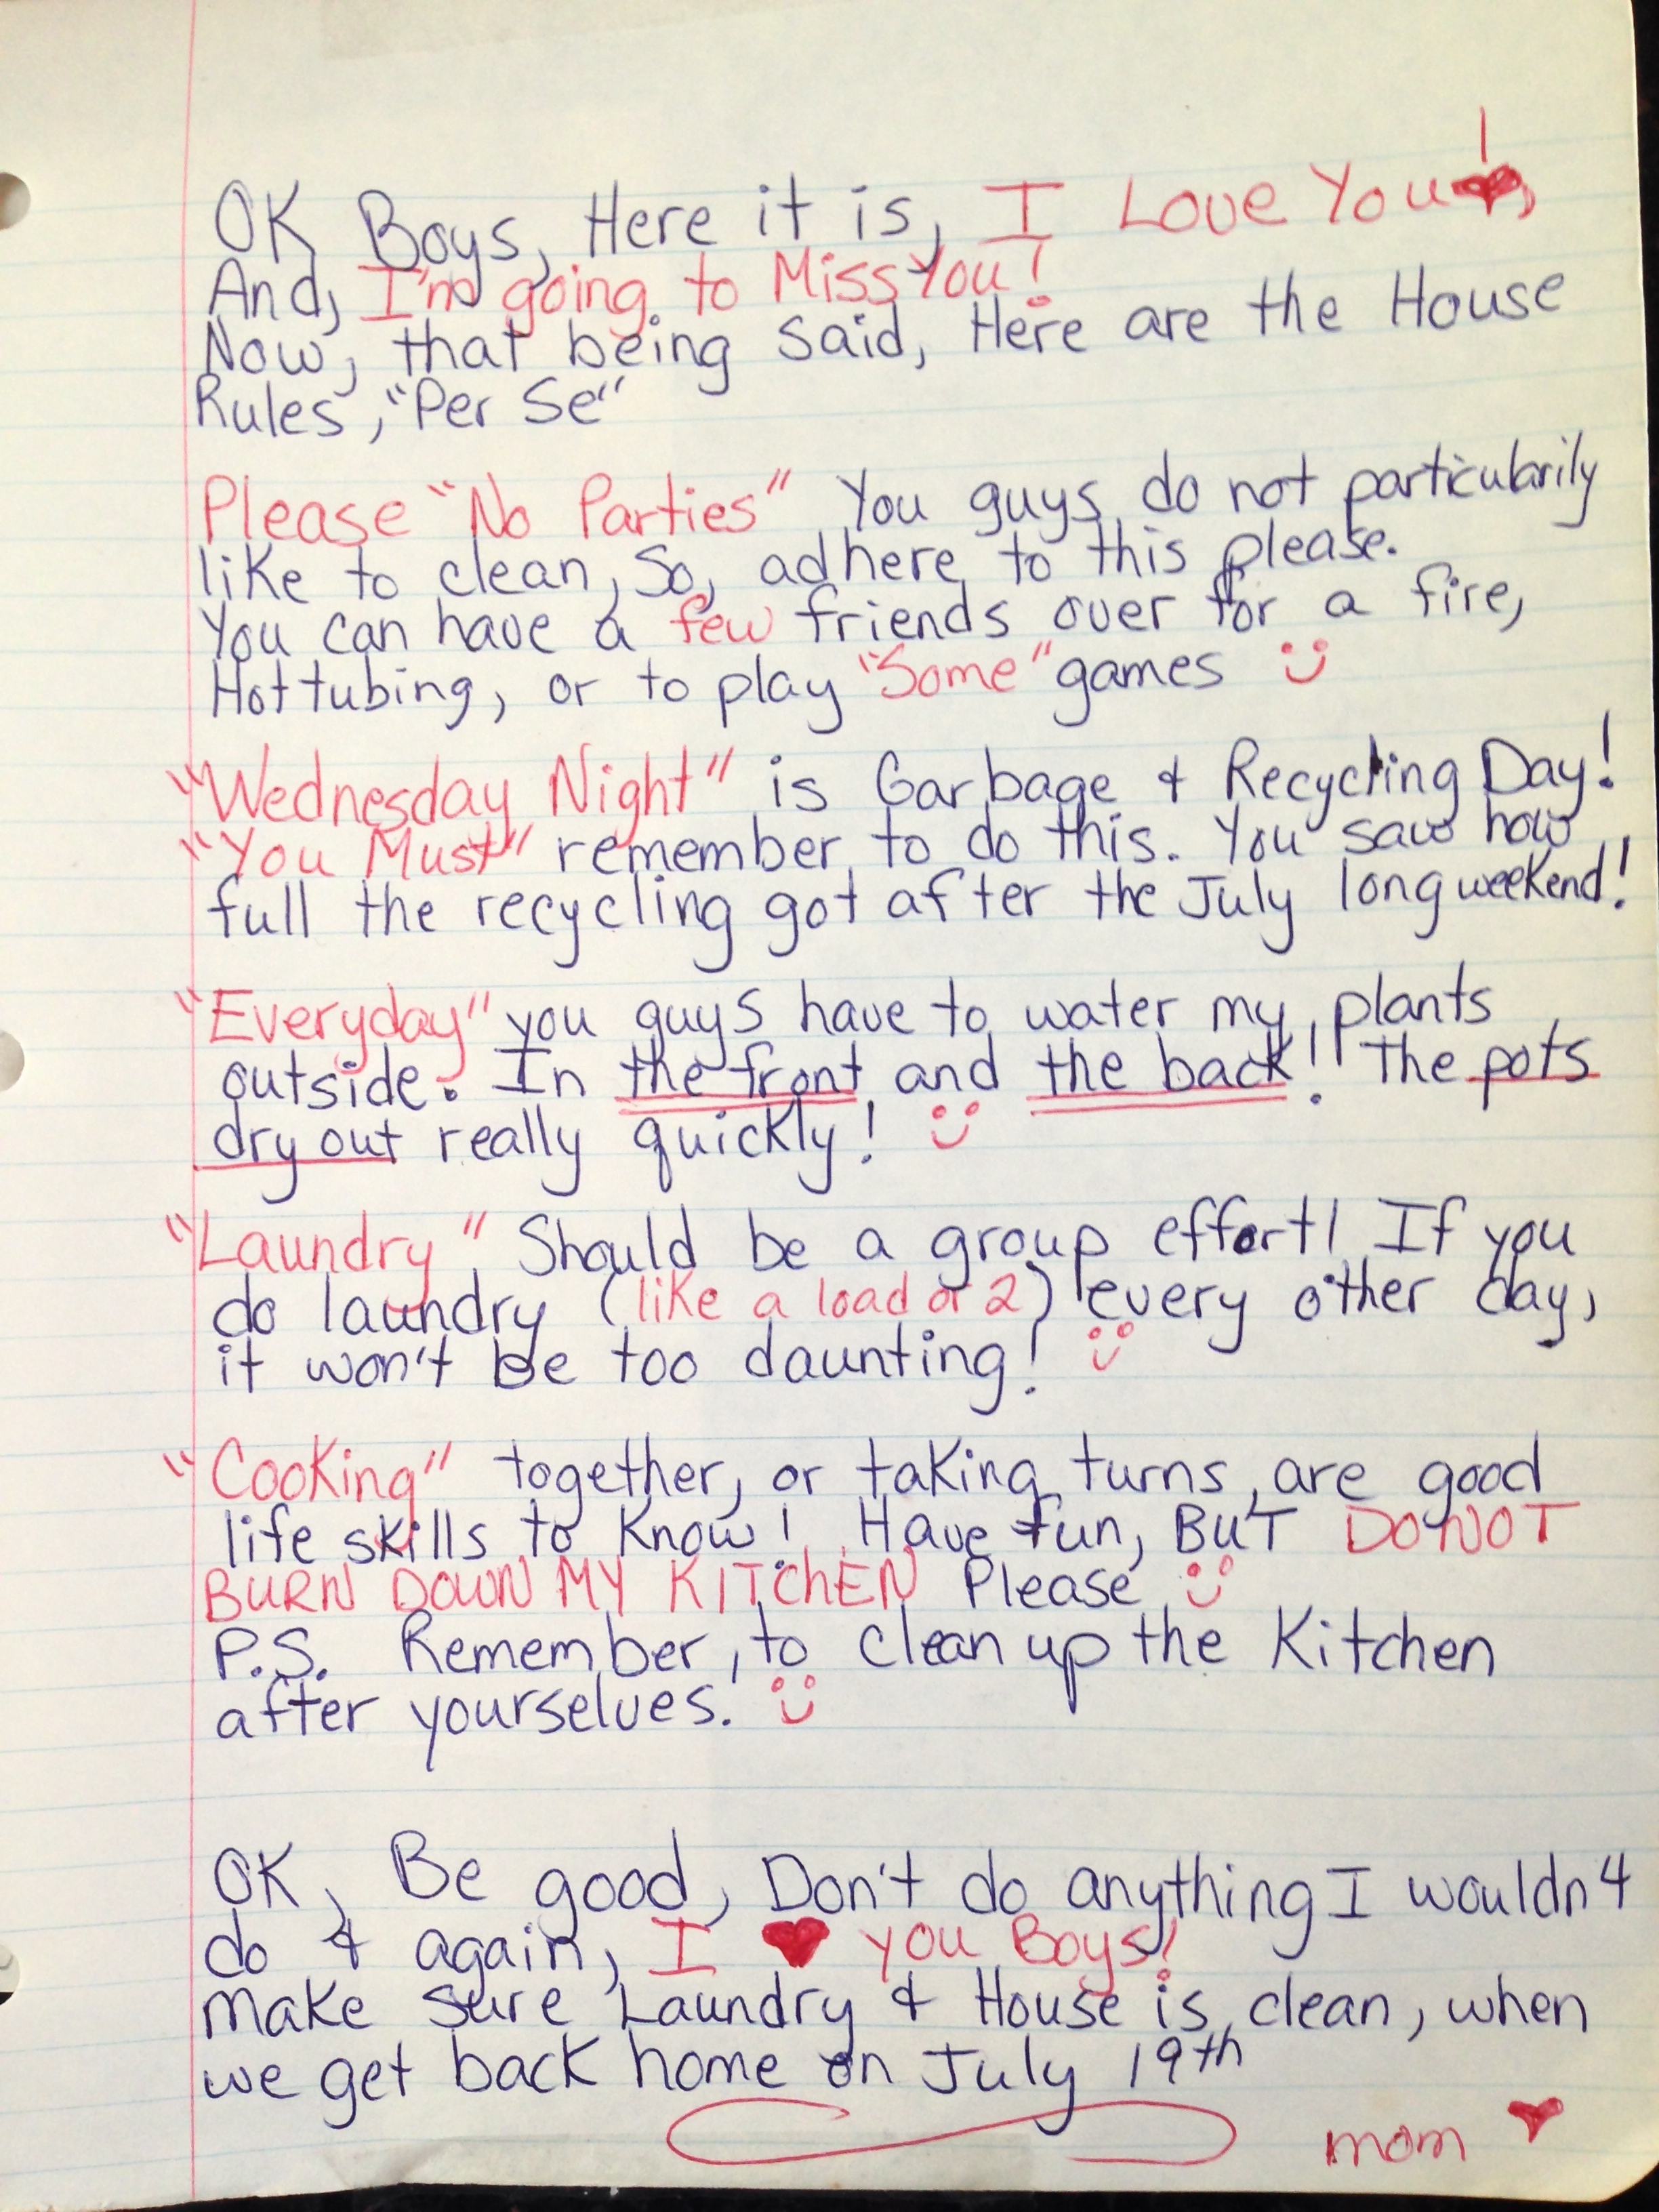 OK Boys, Here it is, I Love You ❤,
And, I'm going to Miss You!
Now, that being said, Here are the House
Rules, "Per Se"
Please "No Parties" You guys do not particularily
like to clean, So, adhere to this please.
You can have a few friends over for a fire,
Hot tubing, or to play "Some" games
"Wednesday Night" is Garbage & Recycling Day!
"You Must" remember to do this. You saw how
full the recycling got after the July long weekend!
"Everyday" you guys have to water my plants
outside. In the front and the back! The pots
dry out really quickly!
"Laundry" Should be a group effort! If you
do laundry (like a load or 2) every other day,
it won't be too daunting!
"Cooking" together, or taking turns are good
life skills to know! Have fun, BUT DO NOT
BURN DOWN MY KITChEN Please
P.S. Remember, to clean up the Kitchen
after yourselves.
OK, Be good, Don't do anything I wouldn't
do & again, I ❤ you Boys!
make sure Laundry & House is clean, when
we get back home on July 19th
mom ❤